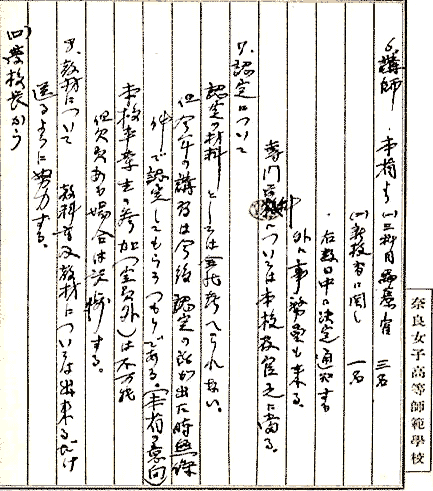 6. 講師 本省より (1) 三科目 視学官 三名
(2) 新教育に関し 一名
・右数日中に決定通知す
外に事務官も来る。
専門学科については本校教官之に当る。
7. 認定について
認定の材料としては全然考へられない。
但今年の講習は今後認定の話が出た時無條
件で認定してもらうつもりである。(本省の意向)
本校卒業生の参加(定員外)は不可能
但欠員ある場合は決裁する。
8. 教材について 教科書及教材については出来るだけ
送るように努力する。
(四) 学校長から
奈良女子高等師範學校